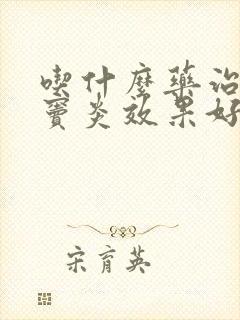 喫什麼藥治
竇炎效果好
宋育英